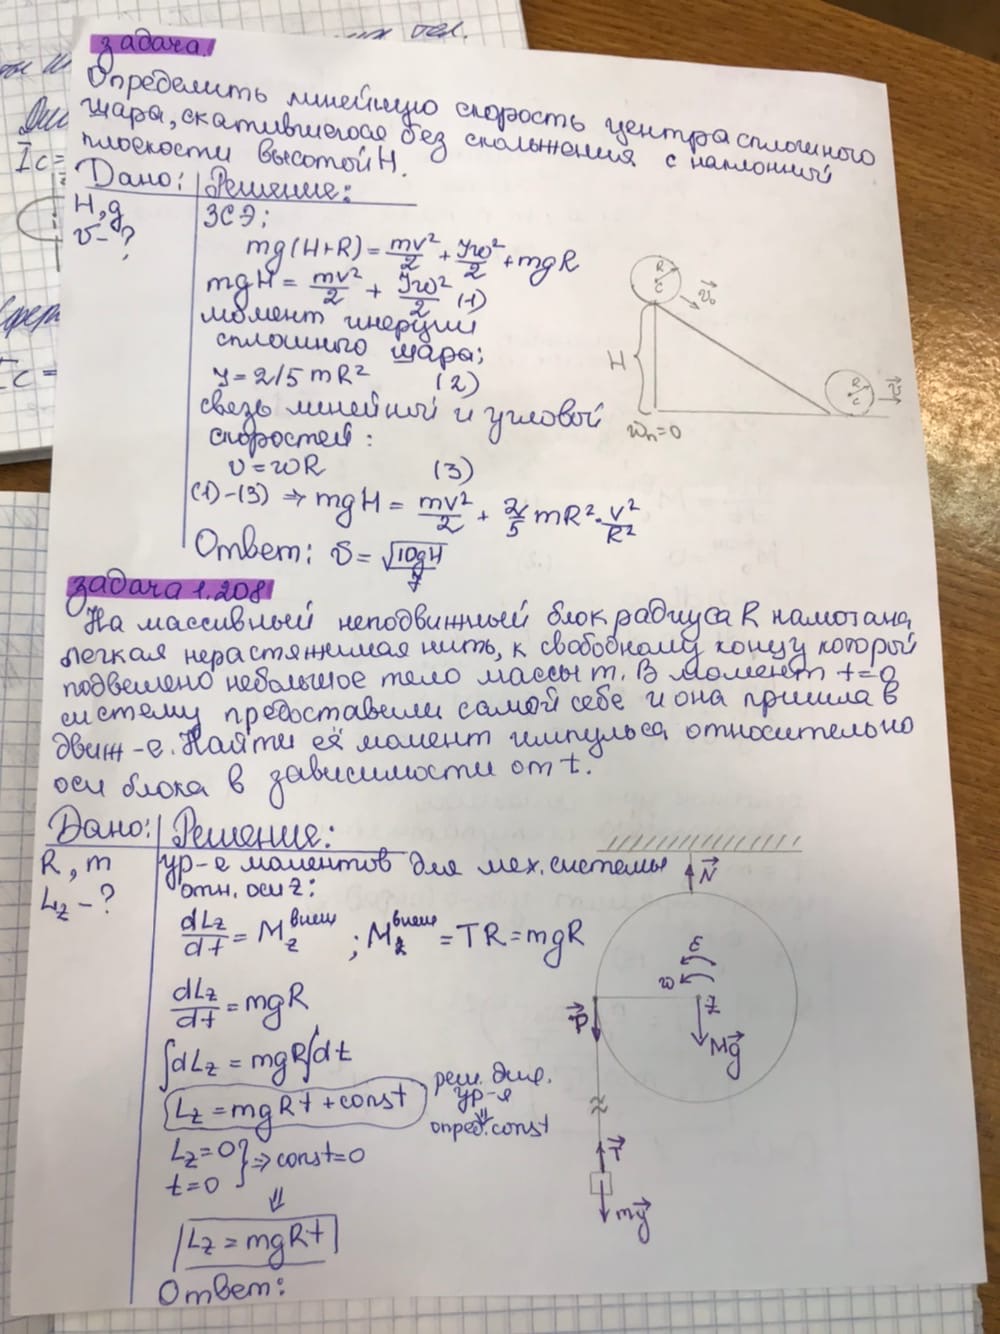 задача.
Определить линейную скорость центра сплошного
шара, скатившегося без скольжения с наклонной
плоскости высотой H.
Дано: Решение:
H, g
v - ?
ЗСЭ:
mg(H+R) = mv²/2 + Jω²/2 + mgR
mgH = mv²/2 + Jω²/2 (1)
момент инерции
сплошного шара:
J = 2/5 mR² (2)
связь линейной и угловой
скоростей:
v = ωR (3)
(1)-(3) ⇒ mgH = mv²/2 + 2/5 mR² · v²/R²
Ответ: v = √10gH/7
R
C
v₀
H
R
C
v
Wп=0
задача 1.208
На массивный неподвижный блок радиуса R намотана
легкая нерастяжимая нить, к свободному концу которой
подвешено небольшое тело массы m. В момент t=0
систему предоставили самой себе и она пришла в
движ-е. Найти её момент импульса относительно
оси блока в зависимости от t.
Дано: Решение:
R, m
Lz - ?
ур-е моментов для мех. системы
отн. оси z:
dLz/dt = Mz внеш ; Mz внеш = TR = mgR
dLz/dt = mgR
∫dLz = mgR∫dt
Lz = mgRt + const
реш. диф.
ур-я
⇓
опред. const
Lz=0
t=0 } ⇒ const=0
⇓
Lz = mgRt
Ответ:
N
ε
ω
z
P
Mg
T
mg
Ic=
Ic =